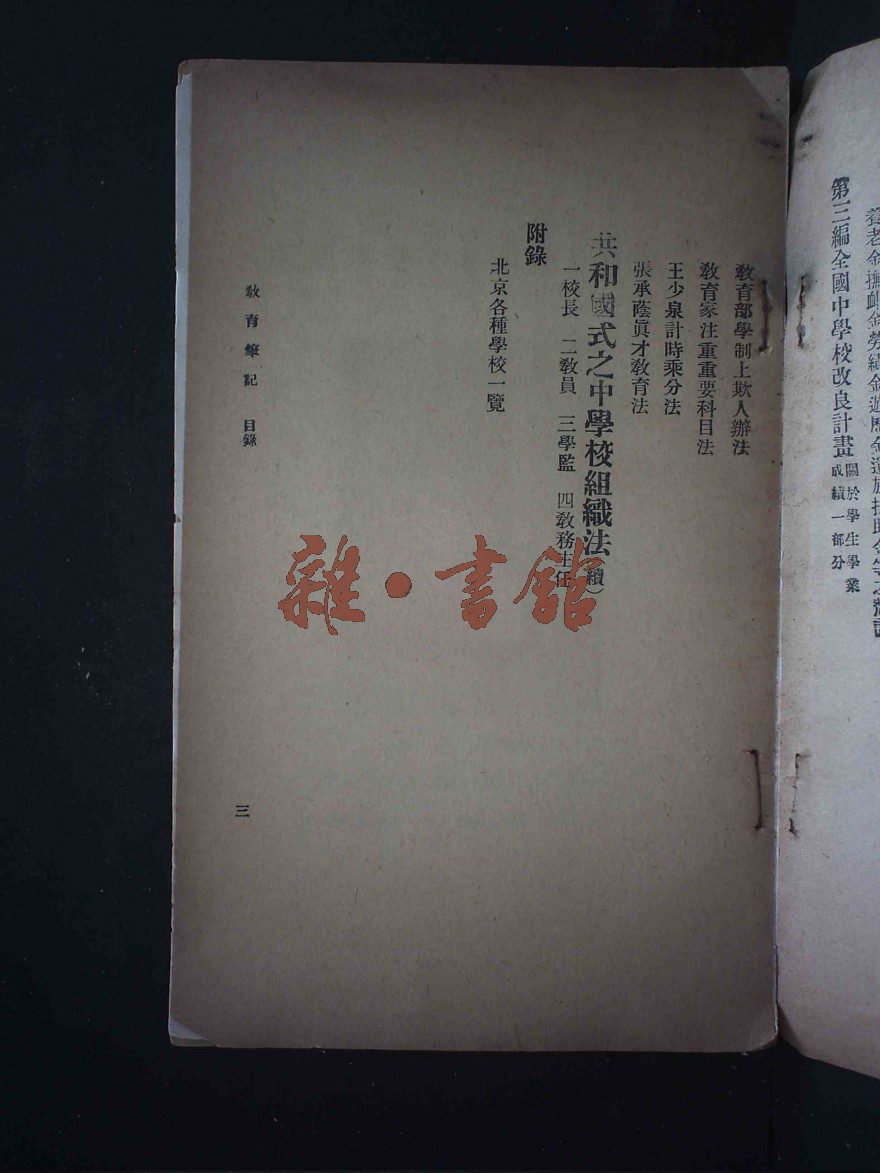 第三編全國中學校改良計畫 關於學生學業成績一部分
教育部學制上欺人辦法
教育家注重重要科目法
王少泉計時乘分法
張承蔭眞才教育法
共和國式之中學校組織法(續)
一校長 二教員 三學監 四教務主任
附錄
北京各種學校一覽
教育筆記 目錄
三
雜·書館